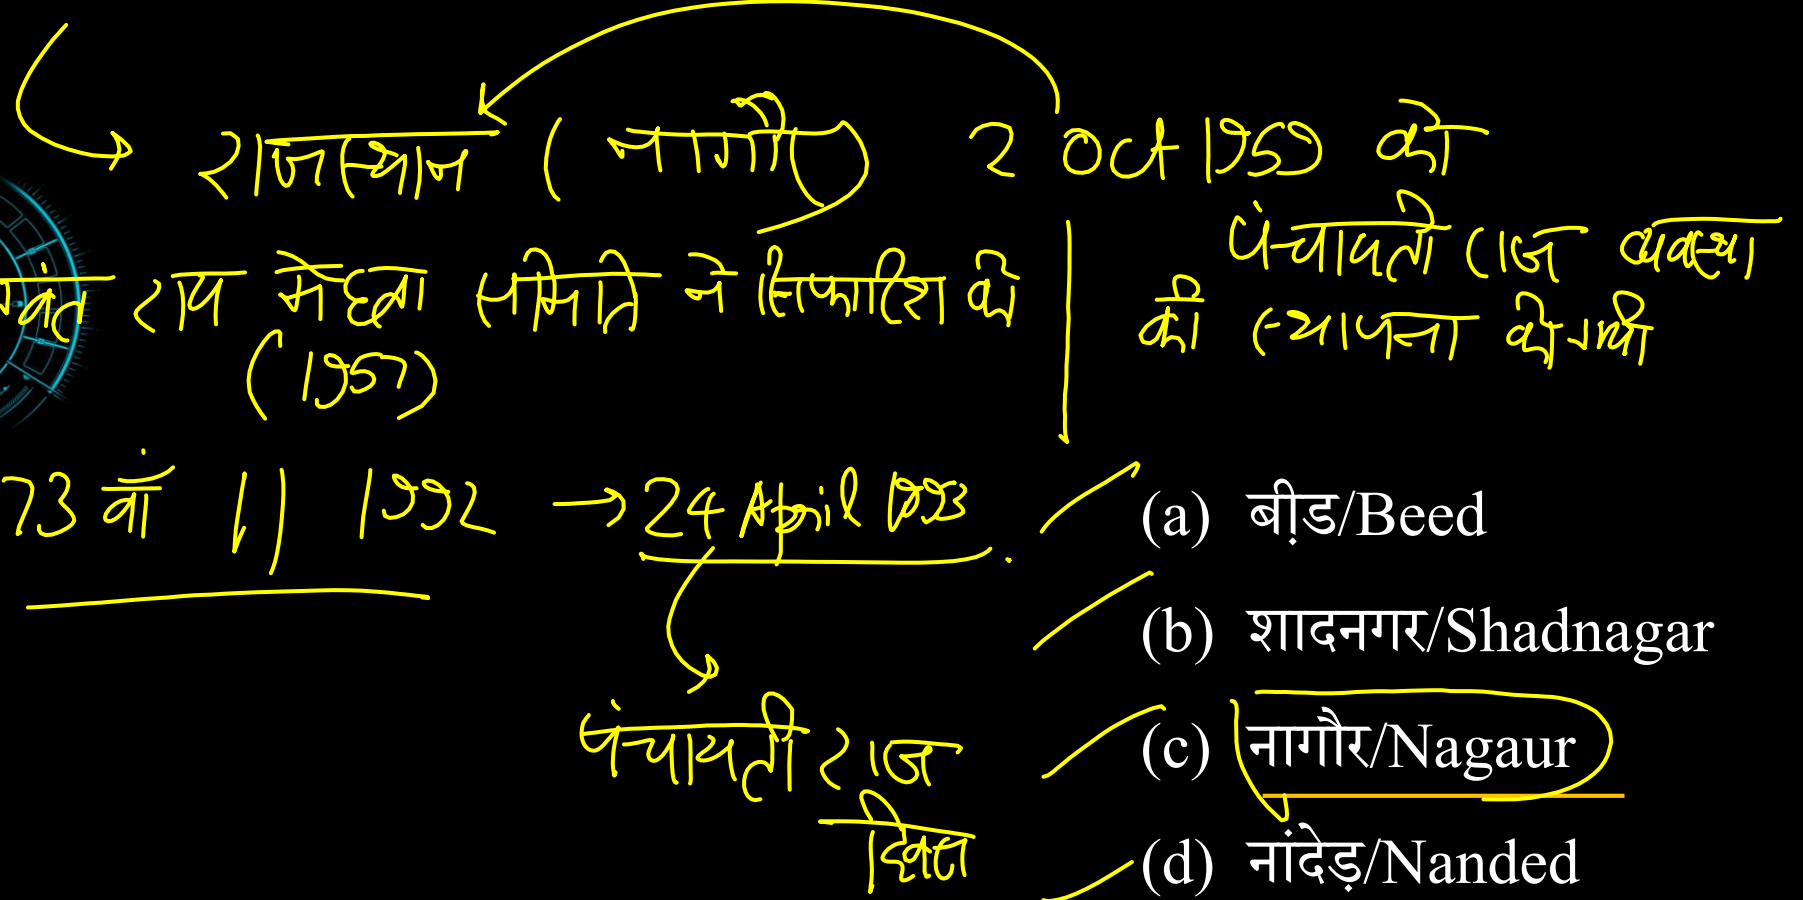 राजस्थान (नागौर) 2 Oct 1959 को
पंचायती राज व्यवस्था
की स्थापना की गयी
राय मेहता समिति ने सिफारिश की
(1957)
73 वाँ 1992 → 24 April 1993.
पंचायती राज
दिवस
(a) बीड़/Beed
(b) शादनगर/Shadnagar
(c) नागौर/Nagaur
(d) नांदेड़/Nanded